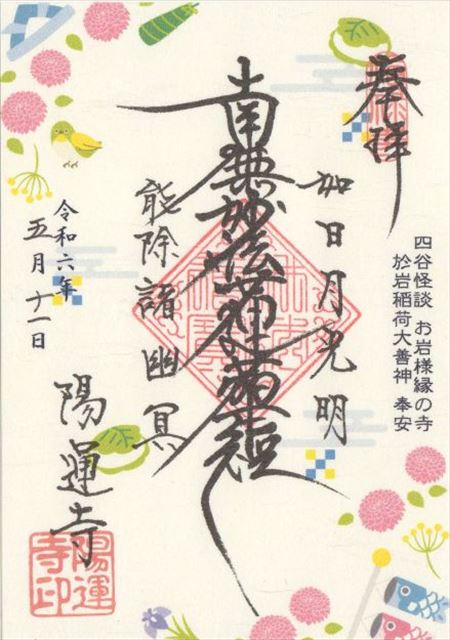 奉拝
四谷怪談 お岩様縁の寺
於岩稲荷大善神 奉安
如日月光明
南無妙法蓮華経
能除諸幽冥
令和六年
五月十一日
陽運寺
陽運
寺印